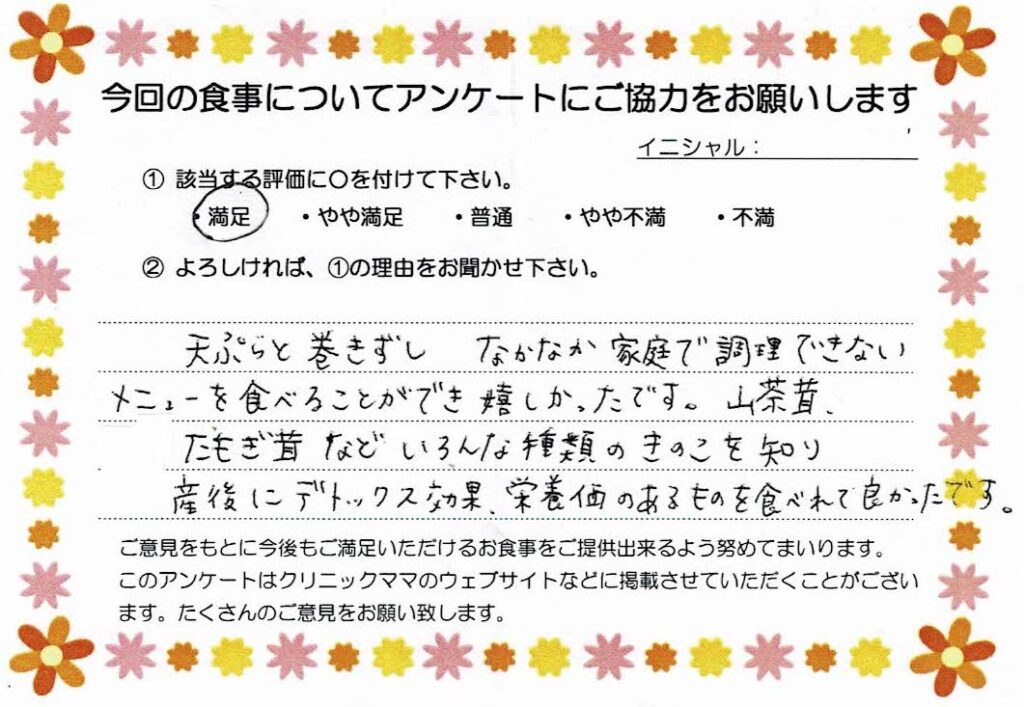 今回の食事についてアンケートにご協力をお願いします
イニシャル：
① 該当する評価に○を付けて下さい。
・満足 ・やや満足 ・普通 ・やや不満 ・不満
② よろしければ、①の理由をお聞かせ下さい。
天ぷらと巻きずし なかなか家庭で調理できない
メニューを食べることができ嬉しかったです。山茶茸、
たもぎ茸などいろんな種類のきのこを知り
産後にデトックス効果、栄養価のあるものを食べれて良かったです。
ご意見をもとに今後もご満足いただけるお食事をご提供出来るよう努めてまいります。
このアンケートはクリニックママのウェブサイトなどに掲載させていただくことがござい
ます。たくさんのご意見をお願い致します。